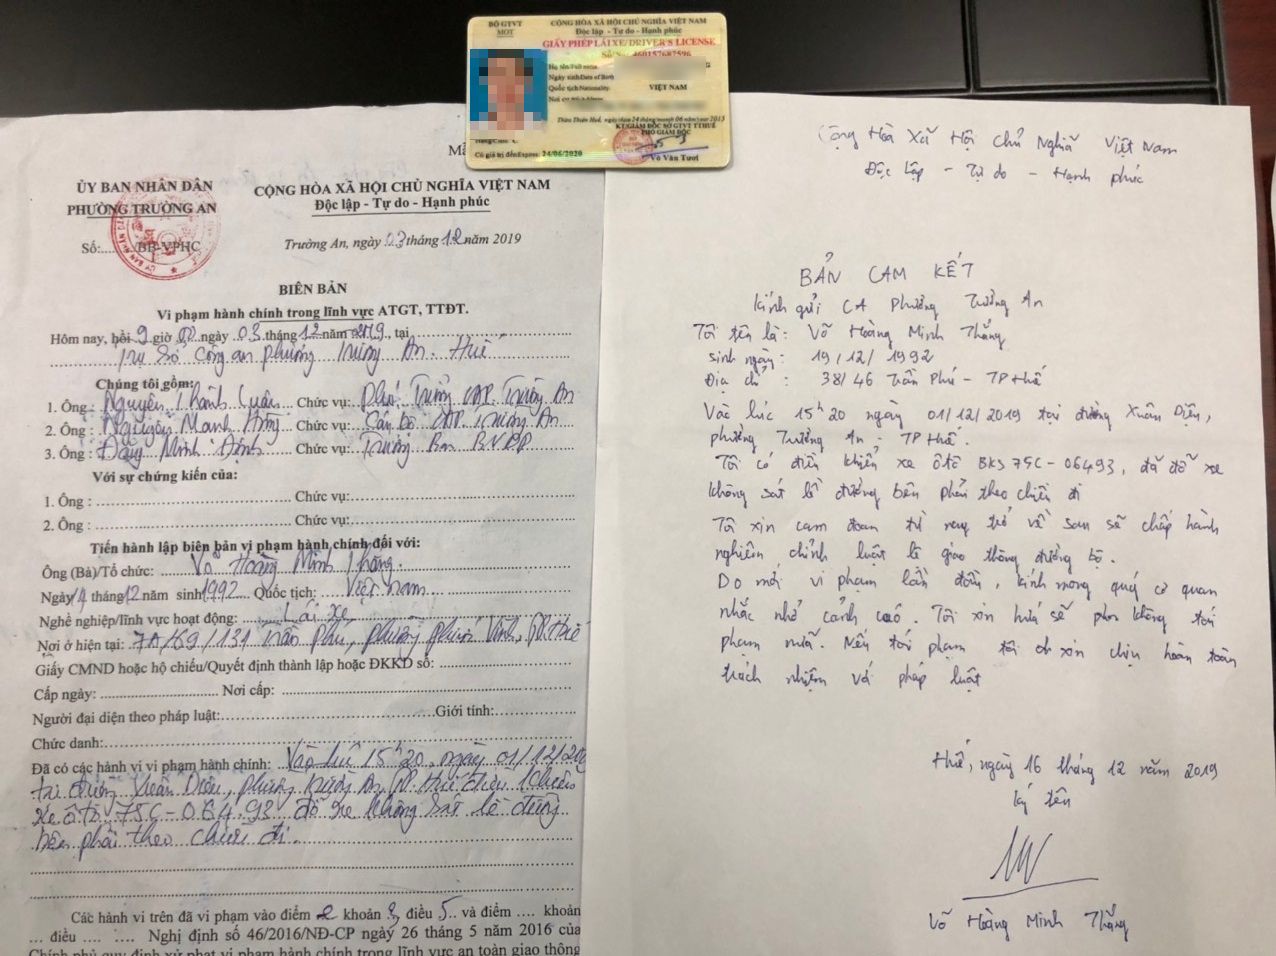 BỘ GTVT
MOT
CỘNG HÒA XÃ HỘI CHỦ NGHĨA VIỆT NAM
Độc lập - Tự do - Hạnh phúc
GIẤY PHÉP LÁI XE/DRIVER'S LICENSE
Số/No: 460157687596
Họ tên/Full name
Ngày sinh/Date of Birth
Quốc tịch/Nationality VIỆT NAM
Nơi cư trú
Thừa Thiên Huế, ngày/date 24 tháng/month 06 năm/year 2015
KT.GIÁM ĐỐC SỞ GTVT TTHUẾ
PHÓ GIÁM ĐỐC
Hạng/Class C
Có giá trị đến/Expires 24/06/2020
Võ Văn Tươi
ỦY BAN NHÂN DÂN
PHƯỜNG TRƯỜNG AN
Số:....../BB-VPHC
CỘNG HÒA XÃ HỘI CHỦ NGHĨA VIỆT NAM
Độc lập - Tự do - Hạnh phúc
Trường An, ngày 03 tháng 12 năm 2019
BIÊN BẢN
Vi phạm hành chính trong lĩnh vực ATGT, TTĐT.
Hôm nay, hồi 9 giờ 00 ngày 03 tháng 12 năm 2019, tại
Trụ Sở Công an phường Trường An. Huế
Chúng tôi gồm:
1. Ông : Nguyễn Thành Luân Chức vụ: Phó Trưởng CAP. Trường An
2. Ông : Nguyễn Mạnh Hùng Chức vụ: Cán bộ CAP. Trường An
3. Ông : Đặng Minh Định Chức vụ: Trưởng Ban BVDP
Với sự chứng kiến của:
1. Ông : Chức vụ:
2. Ông : Chức vụ:
Tiến hành lập biên bản vi phạm hành chính đối với:
Ông (Bà)/Tổ chức: Võ Hoàng Minh Thắng.
Ngày 19 tháng 12 năm sinh 1992 Quốc tịch: Việt nam
Nghề nghiệp/lĩnh vực hoạt động: Lái xe
Nơi ở hiện tại: 7A/69/131 Trần Phú, phường phước Vĩnh, TP. Huế
Giấy CMND hoặc hộ chiếu/Quyết định thành lập hoặc ĐKKD số:
Cấp ngày: Nơi cấp:
Người đại diện theo pháp luật: Giới tính:
Chức danh:
Đã có các hành vi vi phạm hành chính: Vào lúc 15h20, ngày 01/12/20
tại đường Xuân Diệu, phường trường An, TP. Huế điều khiển
xe ôtô 75C-064.93 đỗ xe không sát lề đường
bên phải theo chiều đi.
Các hành vi trên đã vi phạm vào điểm e khoản 3 điều 5.. và điểm .... khoản
... điều .... .... Nghị định số 46/2016/NĐ-CP ngày 26 tháng 5 năm 2016 của
Chính phủ quy định xử phạt vi phạm hành chính trong lĩnh vực an toàn giao thông
Cộng Hoà Xã Hội Chủ Nghĩa Việt Nam
Độc lập - Tự do - Hạnh phúc
BẢN CAM KẾT
Kính gửi CA Phường Trường An
Tôi tên là: Võ Hoàng Minh Thắng
sinh ngày: 19/12/1992
Địa chỉ : 38/46 Trần Phú - TP Huế
Vào lúc 15h20 ngày 01/12/2019 tại đường Xuân Diệu,
phường Trường An - TP Huế.
Tôi có điều khiển xe ôtô BKS 75C-06493, đã đỗ xe
không sát lề đường bên phải theo chiều đi
Tôi xin cam đoan từ nay trở về sau sẽ chấp hành
nghiêm chỉnh luật lệ giao thông đường bộ.
Do mới vi phạm lần đầu, kính mong quý cơ quan
nhắc nhở cảnh cáo. Tôi xin hứa sẽ không tái
phạm nữa. Nếu tái phạm tôi xin chịu hoàn toàn
trách nhiệm với pháp luật
Huế, ngày 16 tháng 12 năm 2019
ký tên
Võ Hoàng Minh Thắng